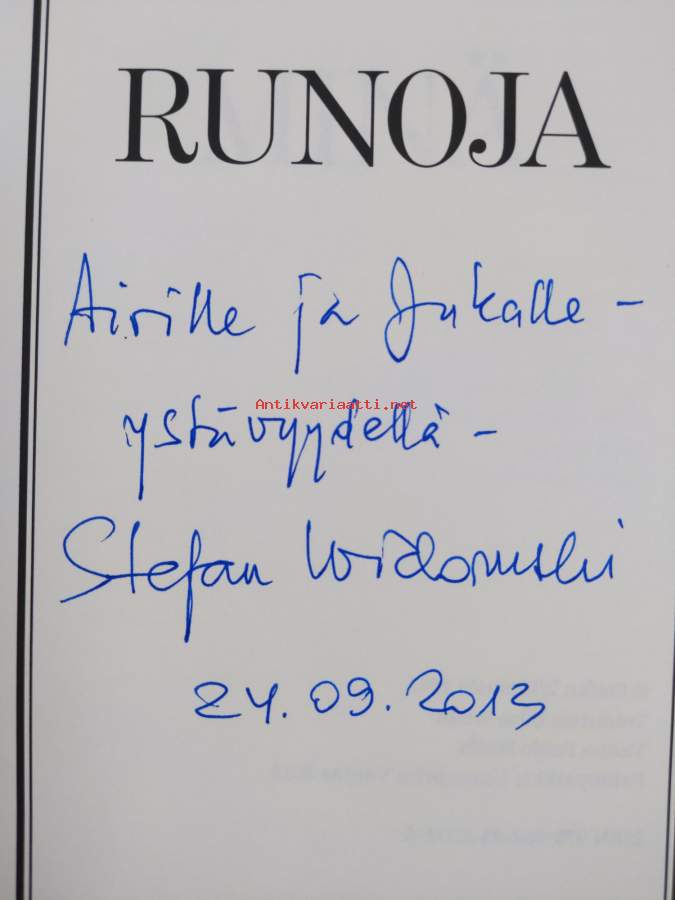 RUNOJA
Airille ja Jukalle -
Antikvariaatti.net
ystävyydellä -
Stefan Widomski
24.09.2013